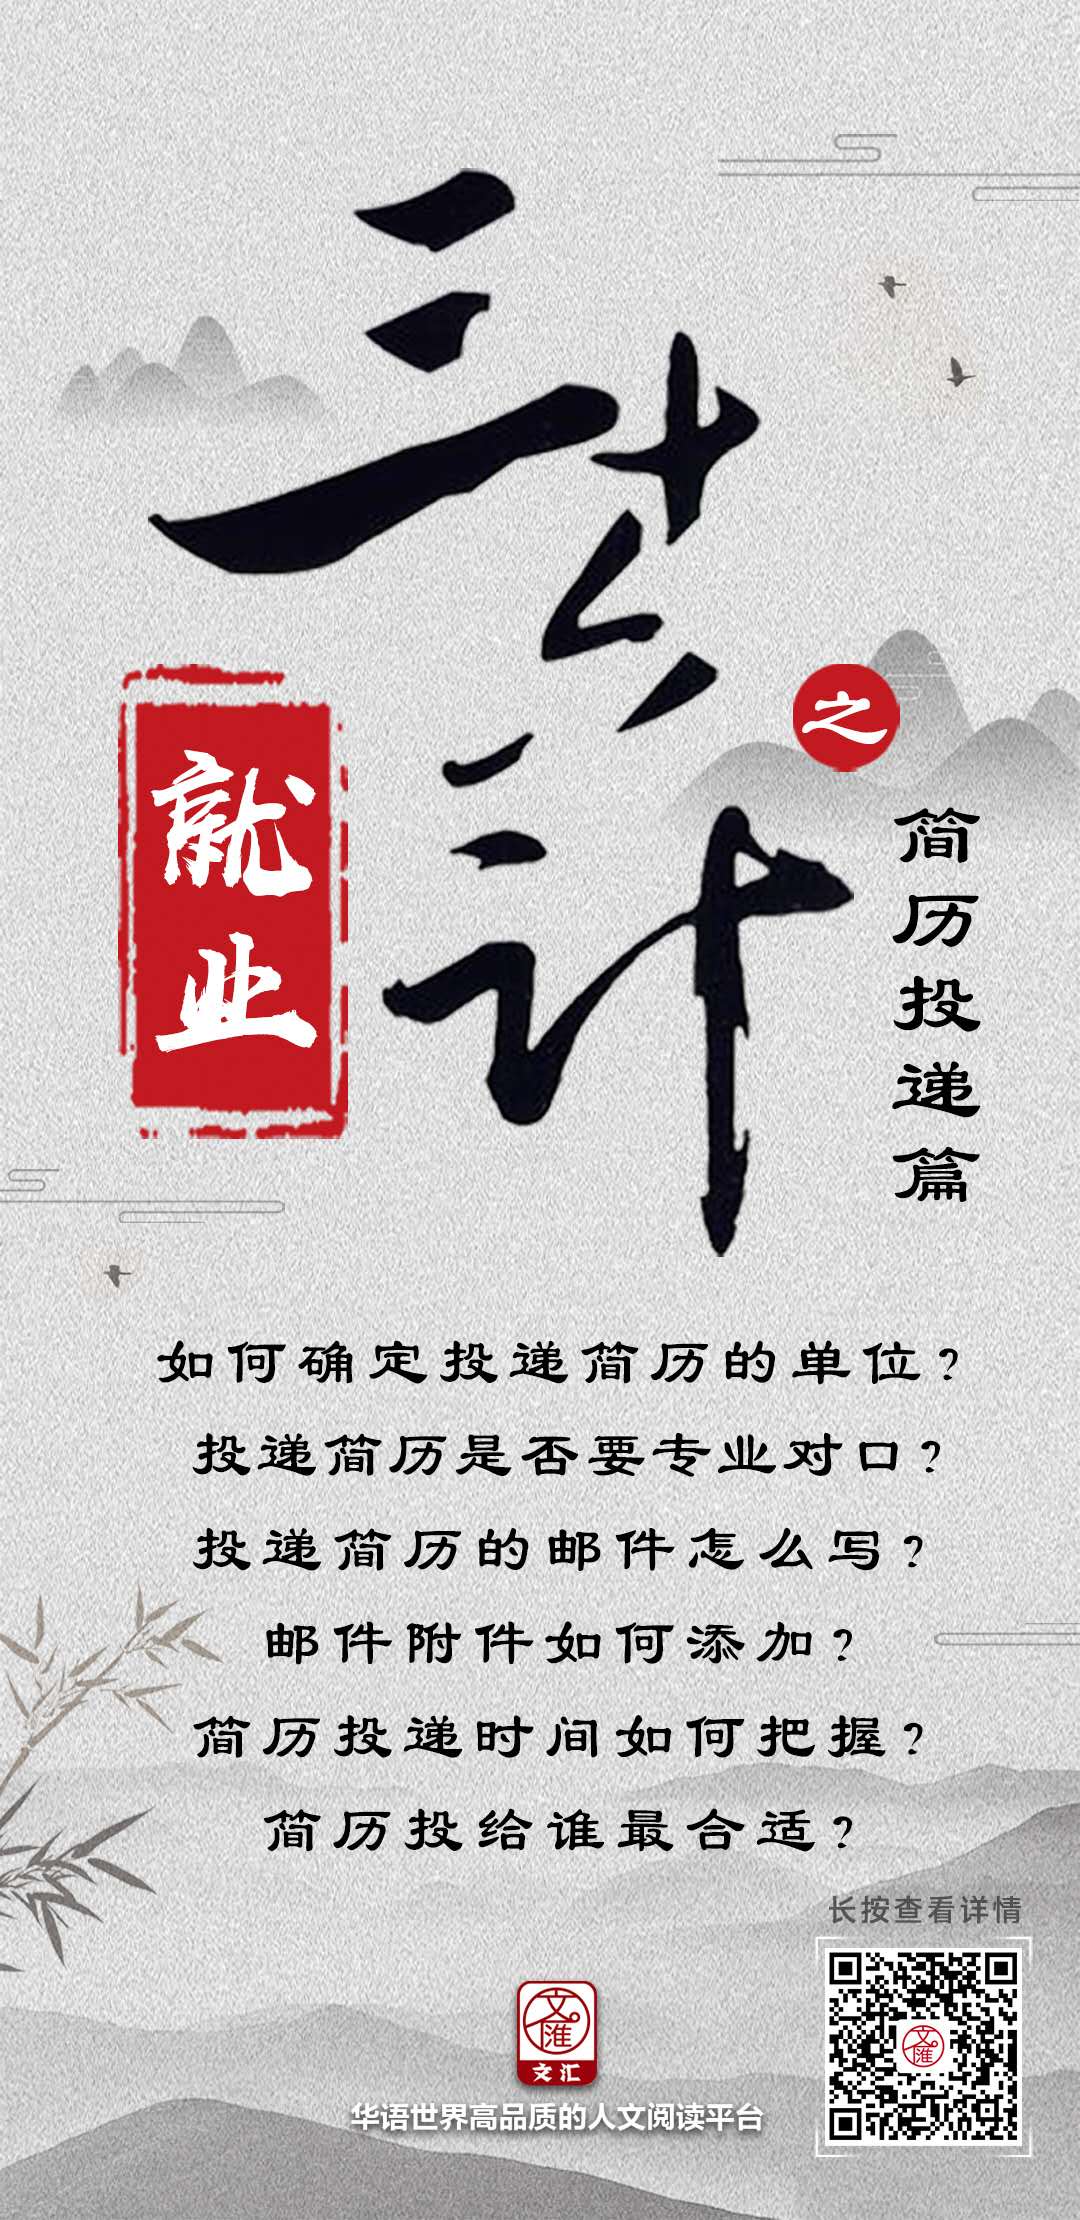 三十六计
就业
之
简历投递篇
如何确定投递简历的单位?
投递简历是否要专业对口?
投递简历的邮件怎么写?
邮件附件如何添加?
简历投递时间如何把握?
简历投给谁最合适?
长按查看详情
文匯
文匯
文汇
华语世界高品质的人文阅读平台